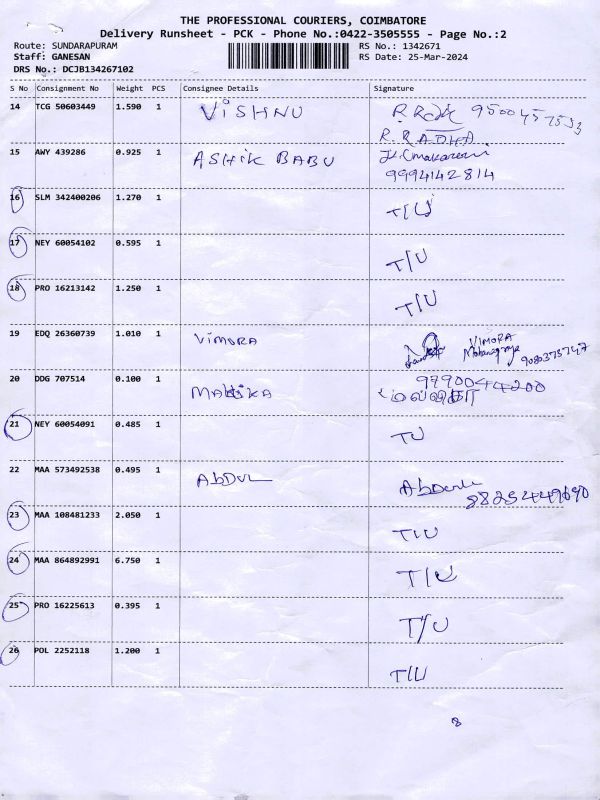 THE PROFESSIONAL COURIERS, COIMBATORE
Delivery Runsheet - PCK - Phone No.:0422-3505555 - Page No.:2
Route: SUNDARAPURAM RS No.: 1342671
Staff: GANESAN RS Date: 25-Mar-2024
DRS No.: DCJB134267102
S No Consignment No Weight PCS Consignee Details Signature
14 TCG 50603449 1.590 1 VISHNU
R. RADHA
15 AWY 439286 0.925 1 ASHIK BABU
9994142814
16 SLM 342400206 1.270 1 T/U
17 NEY 60054102 0.595 1 T/U
18 PRO 16213142 1.250 1 T/U
19 EDQ 26360739 1.010 1 VIMORA VIMORA
20 DDG 707514 0.100 1 MALLIKA 9790044200
மல்லிகா
21 NEY 60054091 0.485 1 TU
22 MAA 573492538 0.495 1 ABDUL
23 MAA 108481233 2.050 1 T/U
24 MAA 864892991 6.750 1 T/U
25 PRO 16225613 0.395 1 T/U
26 POL 2252118 1.200 1 T/U
8